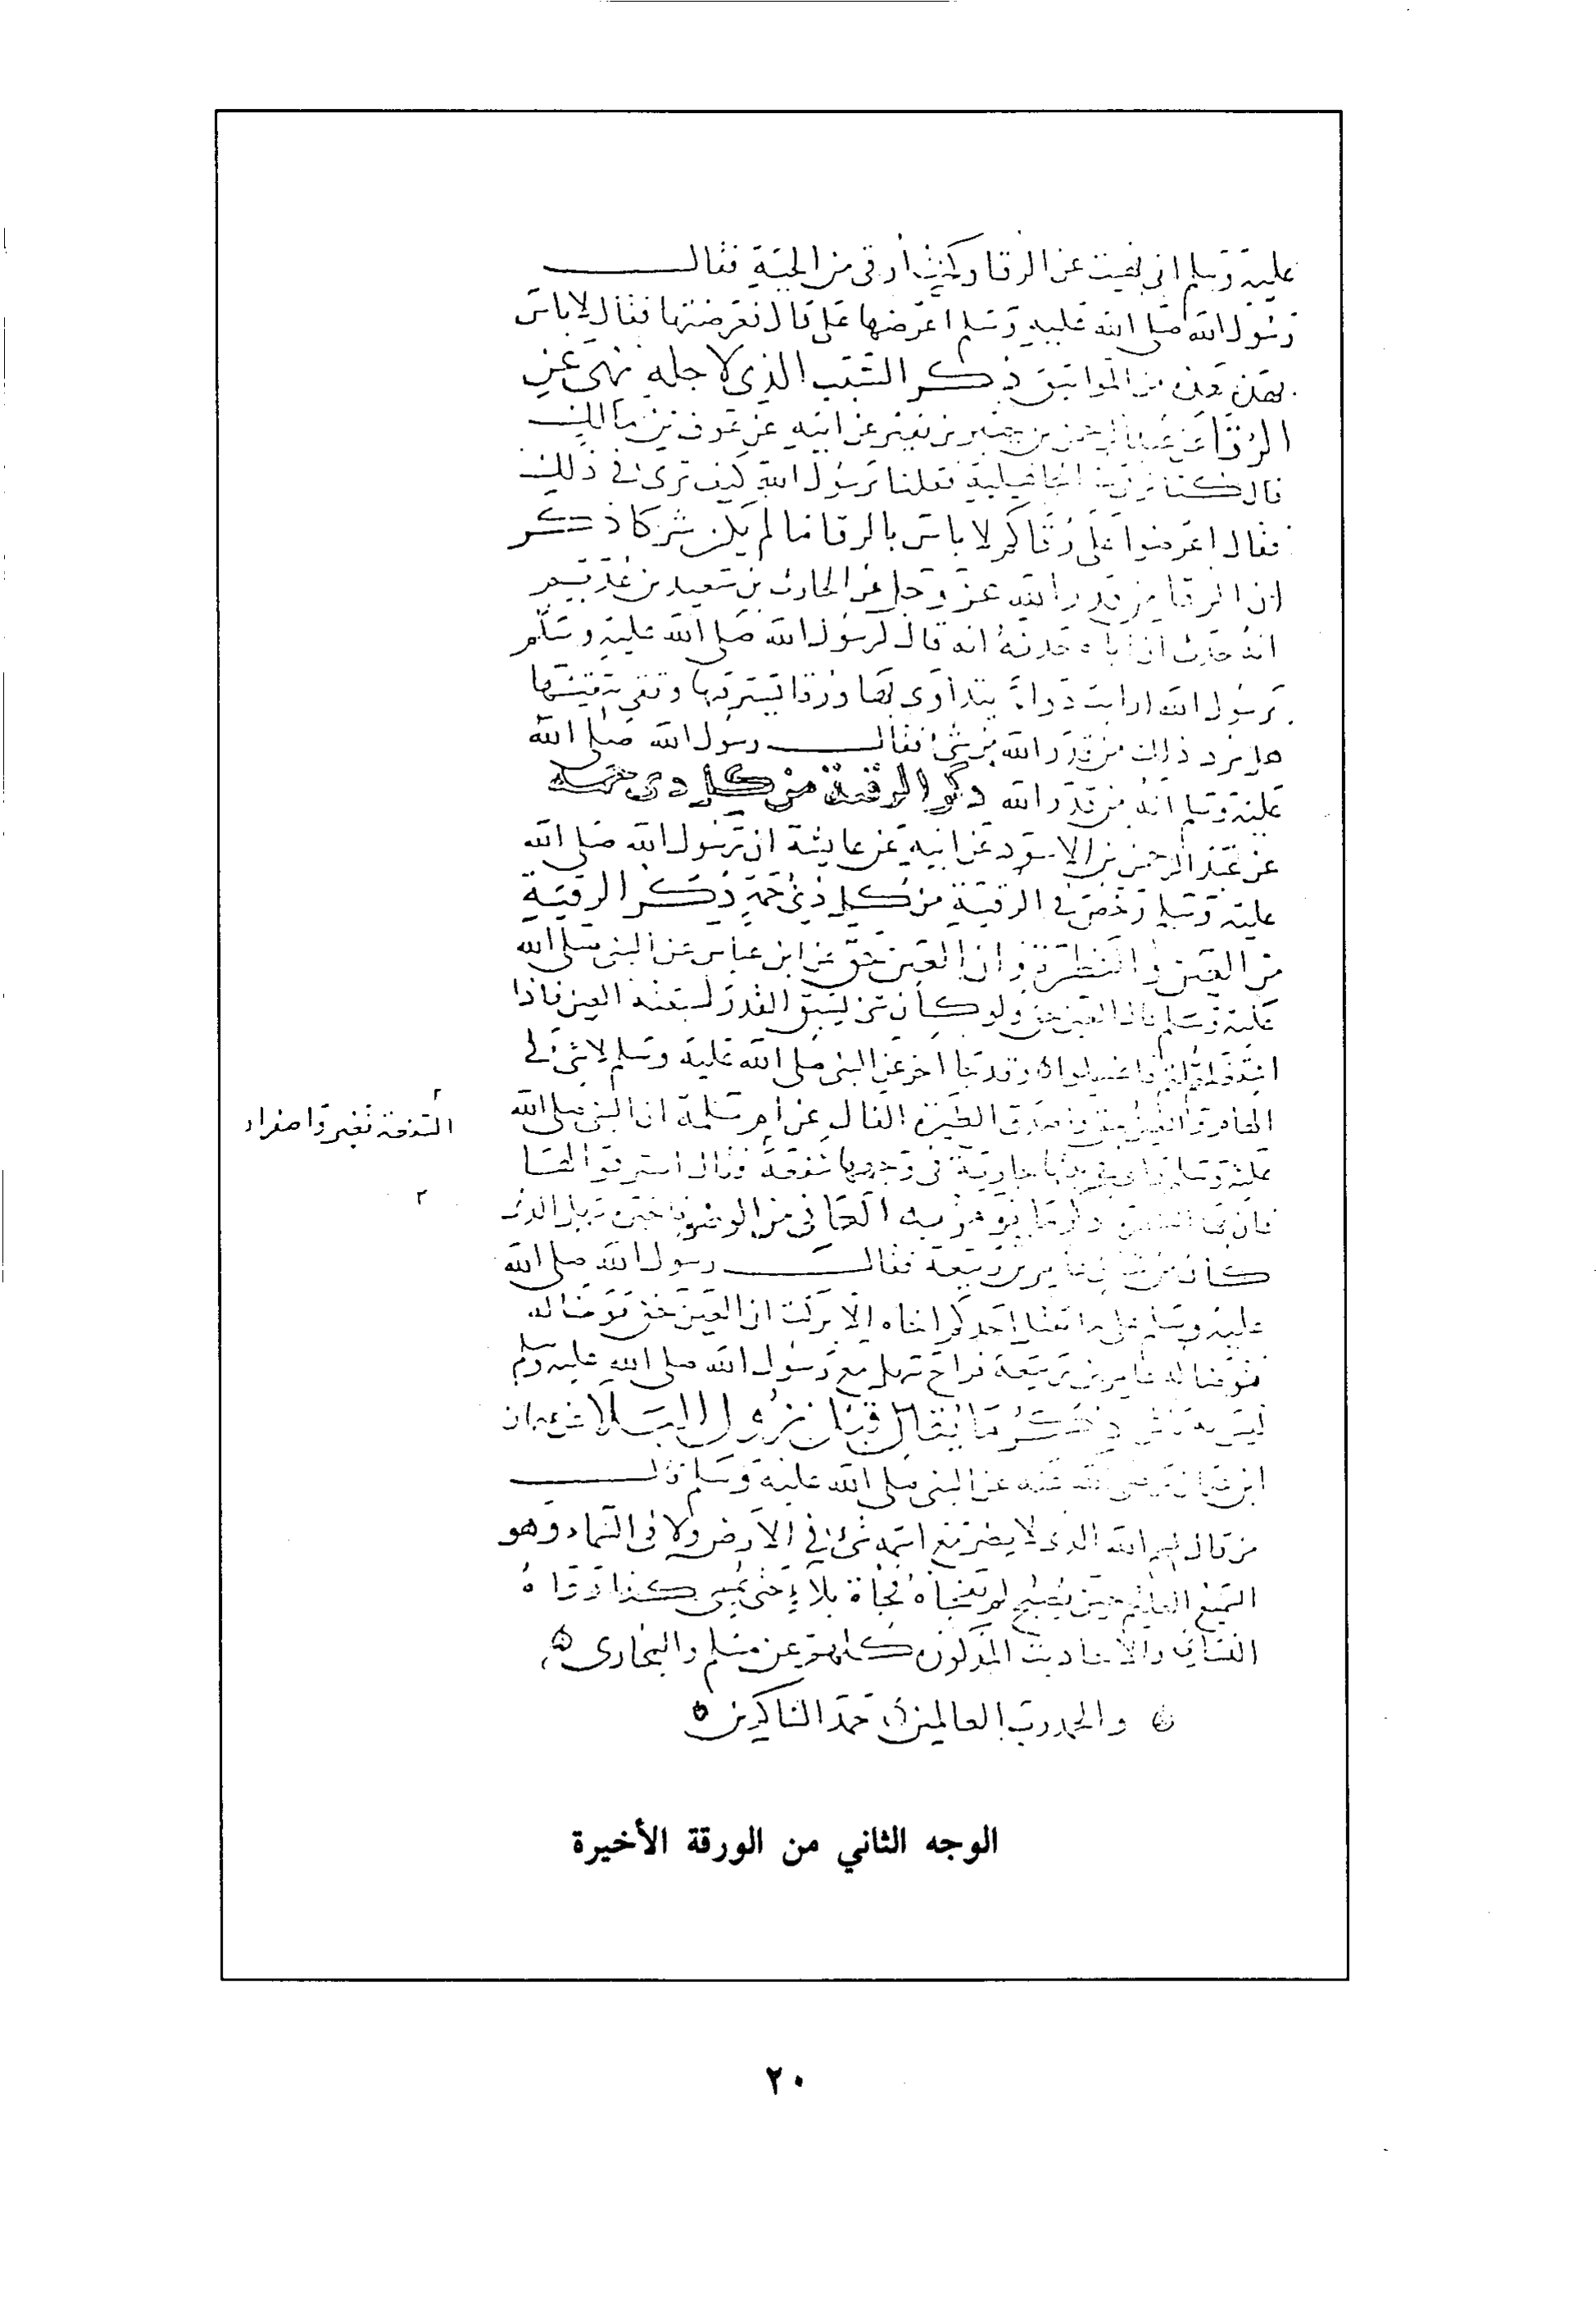 عليه وسلم اني نهيت عن الرقا وكنت أرقى من الحية فقال
رسول الله صلى الله عليه وسلم اعرضها على قال فعرضتها فقال لا باس
بهذه هذه من المواثيق ذكر السبب الذي لاجله نهى عن
الرقا عن عبد الرحمن بن جبير بن نفير عن ابيه عن عوف بن مالك
قال كنا نرقى في الجاهلية فقلنا يرسول الله كيف ترى في ذلك
فقال اعرضوا على رقاكم لا باس بالرقا ما لم يكن شركا ذكر
ان الرقا من قدر الله عز وجل عن الحارث بن سعيد بن
انه حدث ان اباه حدثه انه قال لرسول الله صلى الله عليه وسلم
يرسول الله ارايت دواء يتداوى بها ورقا نسترقيها وتقى نتقيها
هل يرد ذلك من قدر الله من شئ فقال رسول الله صلى الله
عليه وسلم انه من قدر الله ذكر الرقية من كل ذى حمه
عن عبد الرحمن بن الاسود عن ابيه عن عايشة ان رسول الله صلى الله
عليه وسلم رخص في الرقية من كل ذي حمة ذكر الرقية
من العين والنظرة وان العين حق عن ابن عباس عن النبى صلى الله
عليه وسلم قال العين حق ولو كان شئ يسبق القدر لسبقته العين فاذا
فاغسلوا وقد جا اخر عن النبى صلى الله عليه وسلم لا شئ فى
الهام والعين حق واصدق الطيرة الفال عن ام سلمة ان النبى صلى الله
عليه وسلم راى فى بيتها جارية فى وجهها سفعة فقال استرقوا لها
فان بها النظرة ذكر ما يومر به العاين من الوضو
كان من عامر بن ربيعة فقال رسول الله صلى الله
عليه وسلم على ما يقتل احدكم اخاه الا بركت ان العين حق توضا له
فتوضا له عامر بن ربيعة فراح سهل مع رسول الله صلى الله عليه وسلم
ليس به باس ذكر ما يقال قبل نزول البلا عن عثمان
ابن عفان رضى الله عنه عن النبى صلى الله عليه وسلم قال
من قال بسم الله الذى لا يضر مع اسمه شئ في الارض ولا فى السماء وهو
السميع العليم حين يصبح لم تفجأه فجأة بلاء حتى يمسى كذا رواه
النسائي والاحاديث المذكورة كلها عن مسلم والبخارى ه
ه والحمد رب العالمين حمد الشاكرين ه
السفعة تغير واصفرار
الوجه الثاني من الورقة الأخيرة
٢٠